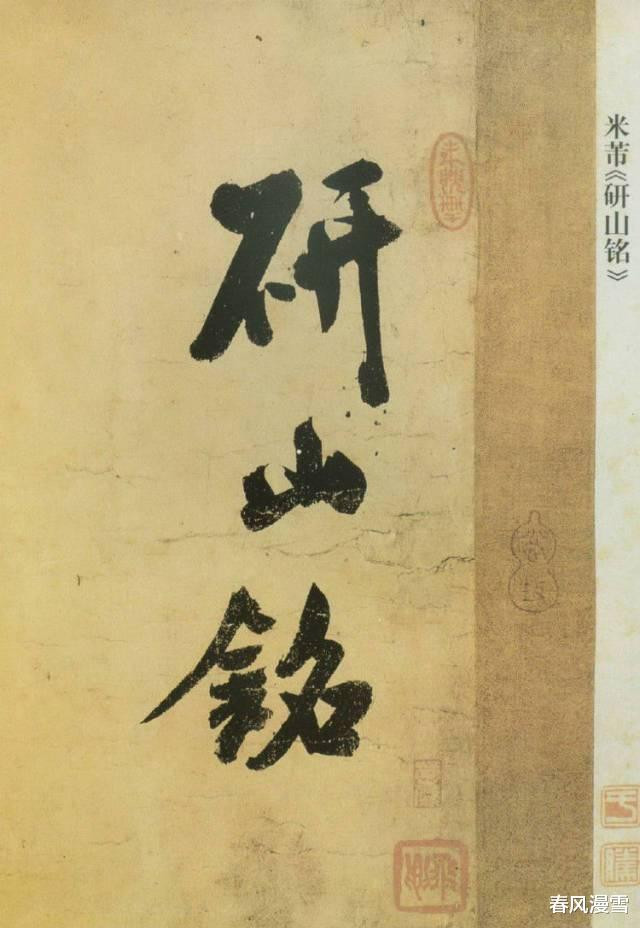 米芾《研山铭》
研
山
銘
春风漫雪